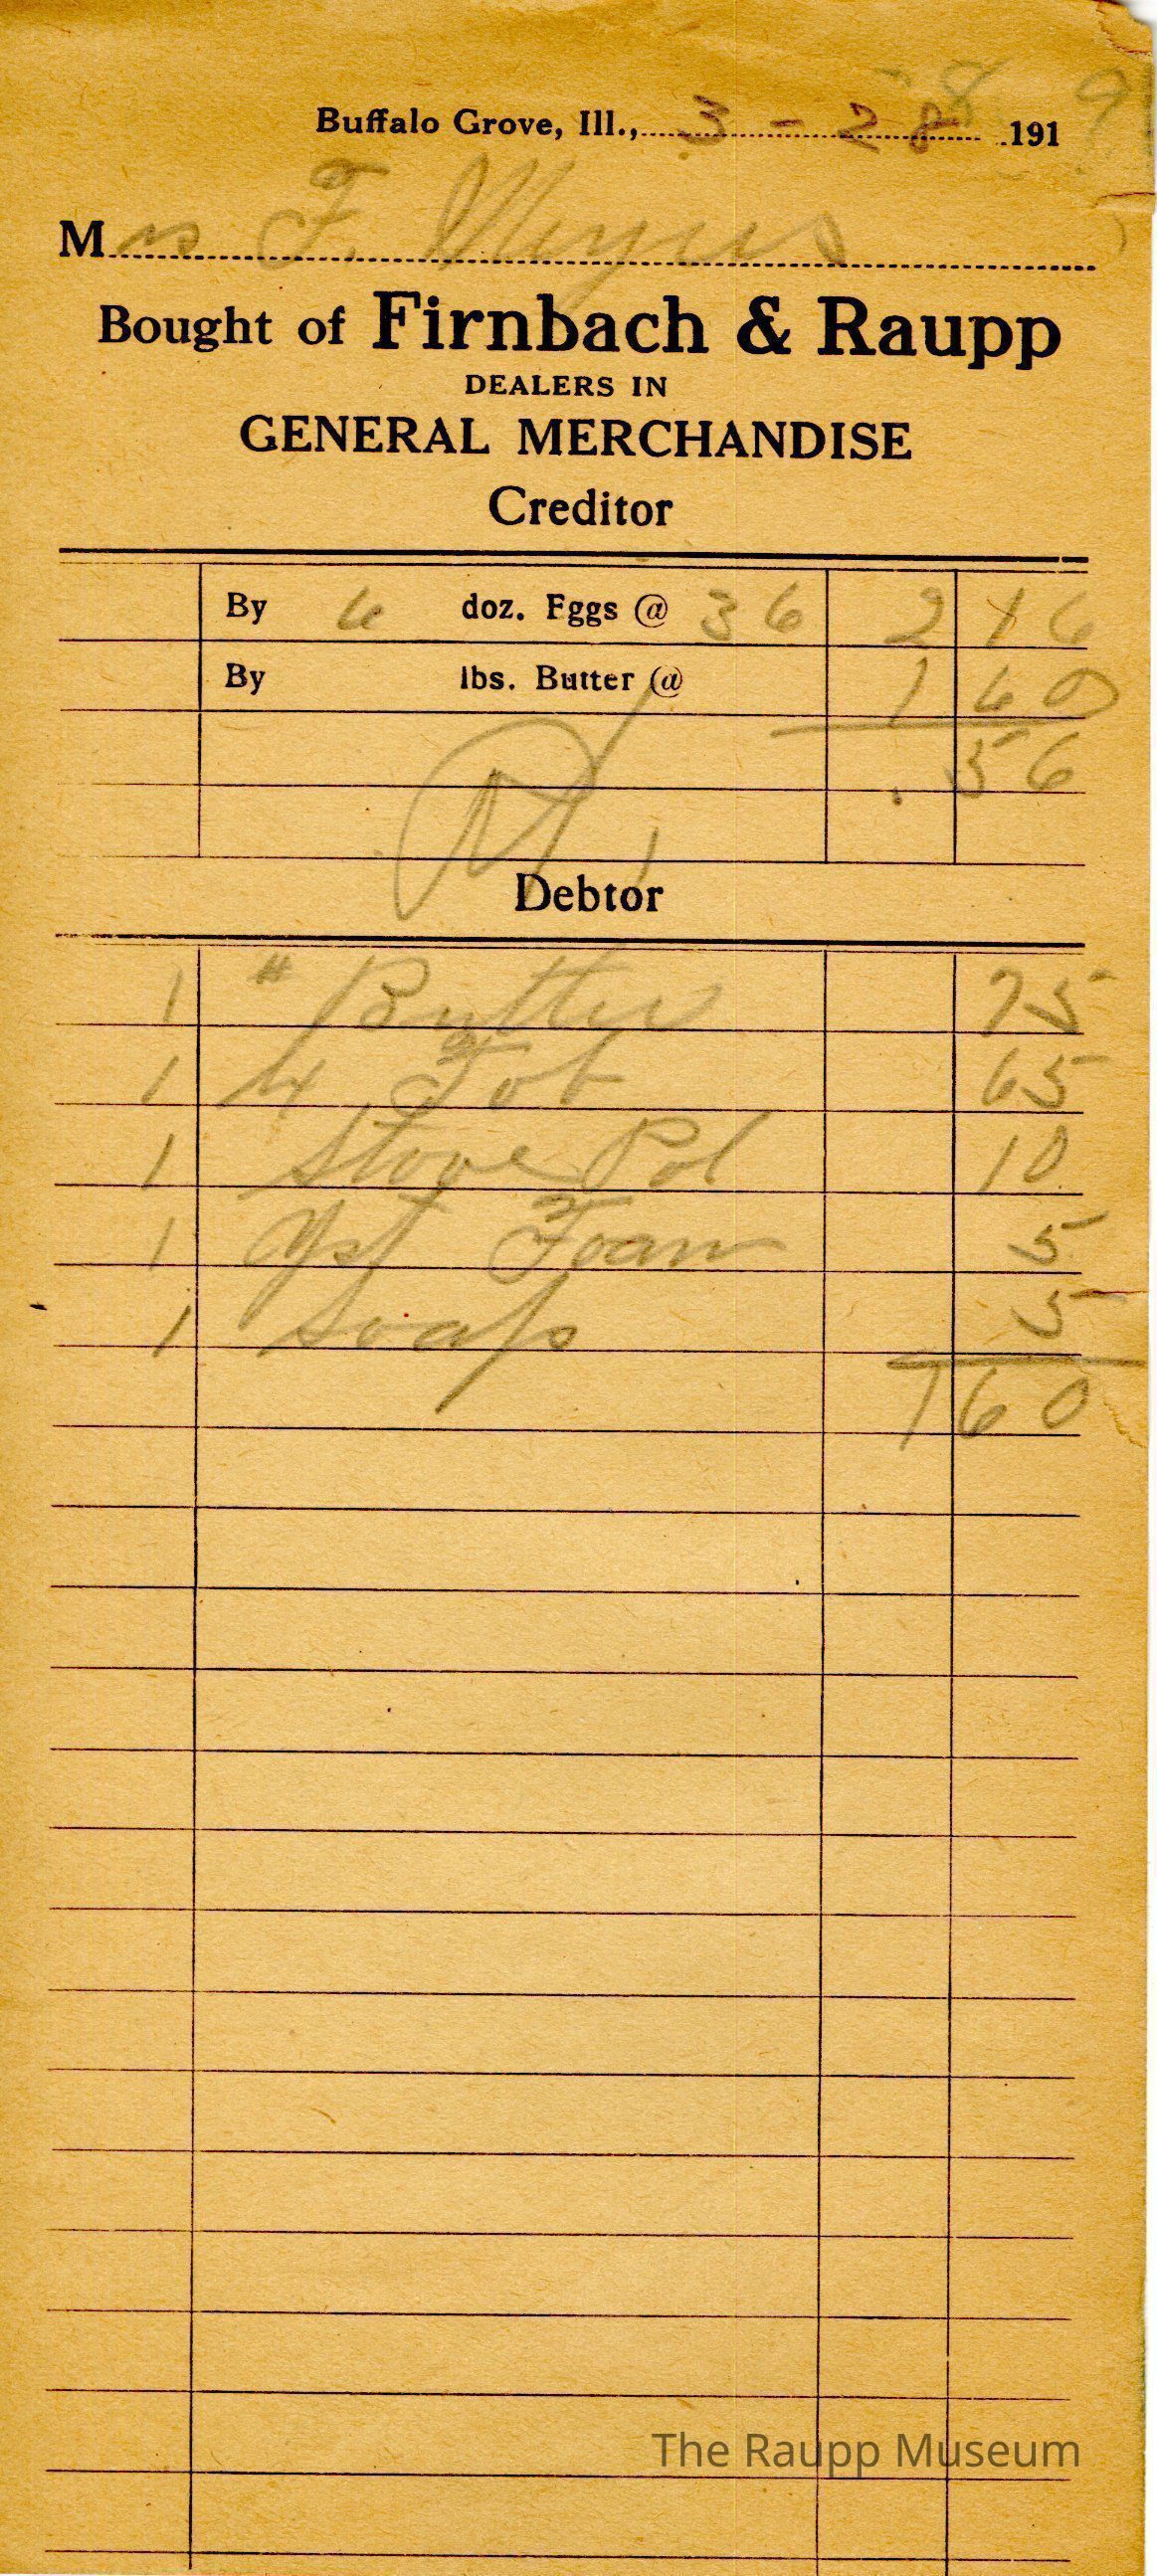 Buffalo Grove, Ill., 3 - 28 1919
Mrs F. Meyers
Bought of Firnbach & Raupp
DEALERS IN
GENERAL MERCHANDISE
Creditor
By 6 doz. Eggs @ 36 2 16
By lbs. Butter @ 1 60
. 56
Debtor
1 # Butter 75
1 Tob 65
1 Stove Pol 10
1 Yst Foam 5
1 Soap 5
1 60
The Raupp Museum